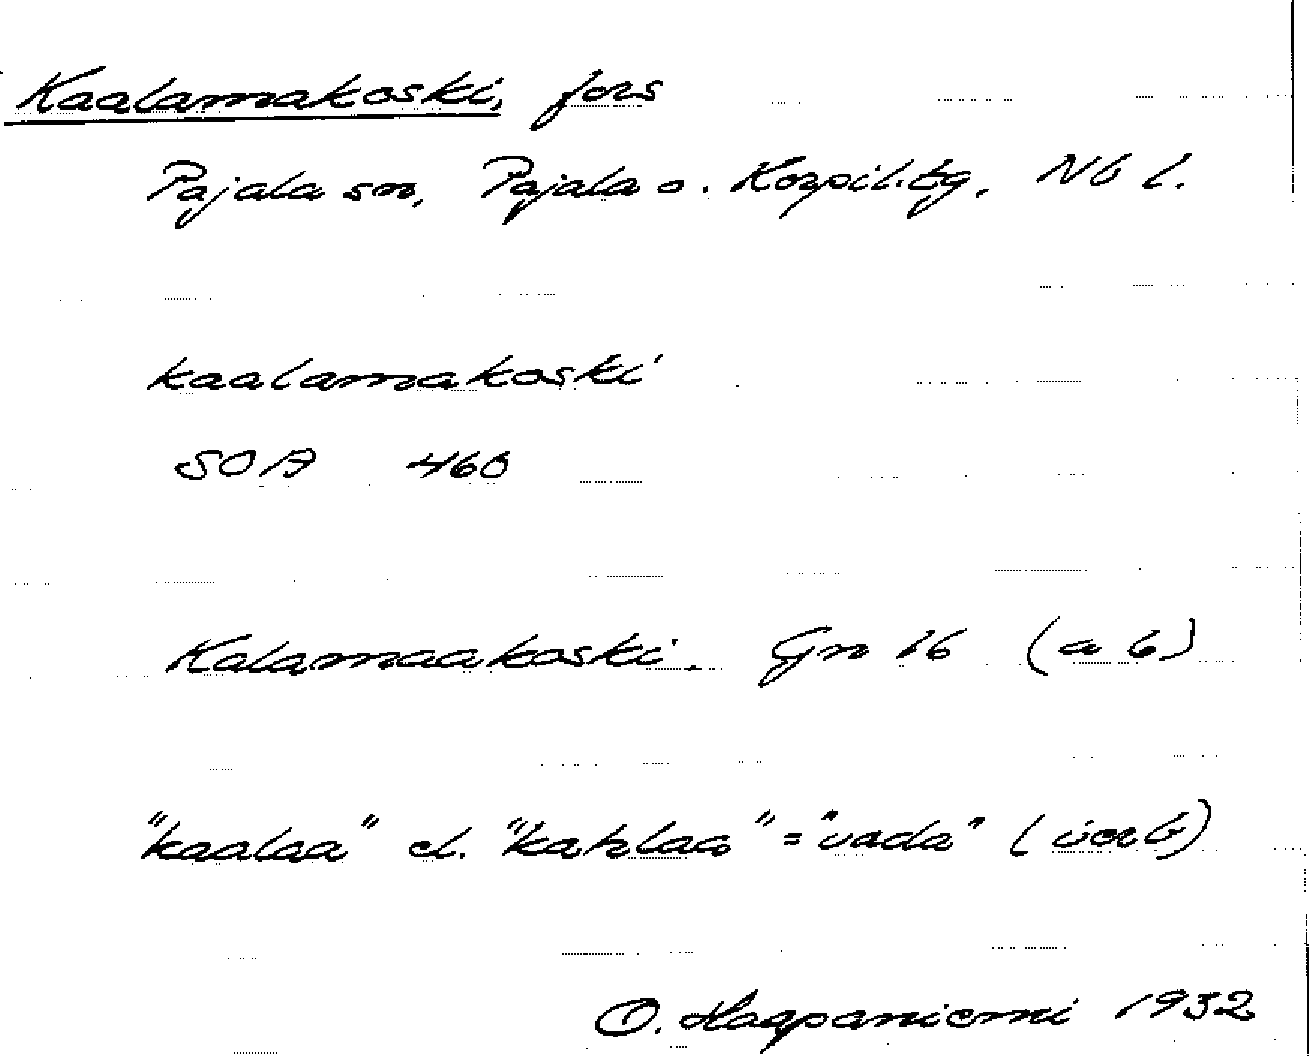 Kaalamakoski, fors
Pajala sn, Pajala o. Korpil. tg, Nb l.
kaalamakoski
SOA 460
Kalamaakoski. Gn 16 (a 6)
"kaalaa" el. "kahlaa" = "vada" (verb)
O. Haapaniemi 1932